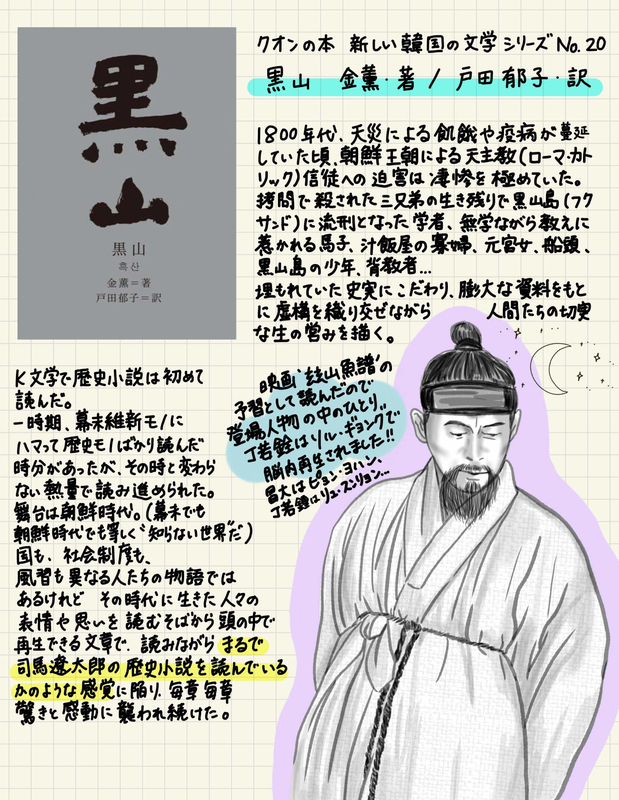 黒山
黒山
흑산
金薫＝著
戸田郁子＝訳
クオンの本 新しい韓国の文学シリーズ No.20
黒山 金薫・著 / 戸田郁子・訳
1800年代、天災による飢餓や疫病が蔓延
していた頃、朝鮮王朝による天主教(ローマ・カト
リック)信徒への迫害は凄惨を極めていた。
拷問で殺された三兄弟の生き残りで黒山島(フク
サンド)に流刑となった学者、無学ながら教えに
惹かれる馬子、汁飯屋の寡婦、元宮女、船頭、
黒山島の少年、背教者…
埋もれていた史実にこだわり、膨大な資料をもと
に虚構を織り交ぜながら 人間たちの切実
な生の営みを描く。
K文学で歴史小説は初めて
読んだ。
一時期、幕末維新モノに
ハマって歴史モノばかり読んだ
時分があったが、その時と変わら
ない熱量で読み進められた。
舞台は朝鮮時代。(幕末でも
朝鮮時代でも等しく“知らない世界”だ)
国も、社会制度も、
風習も異なる人たちの物語では
あるけれど その時代に生きた人々の
表情や思いを読むそばから頭の中で
再生できる文章で、読みながらまるで
司馬遼太郎の歴史小説を読んでいる
かのような感覚に陥り、毎章毎章
驚きと感動に襲われ続けた。
映画“玆山魚譜”の
予習として読んだので
登場人物の中のひとり、
丁若銓はソル・ギョングで
脳内再生されました!!
昌大はピョン・ヨハン、
丁若鍾はリュ・スンリョン…